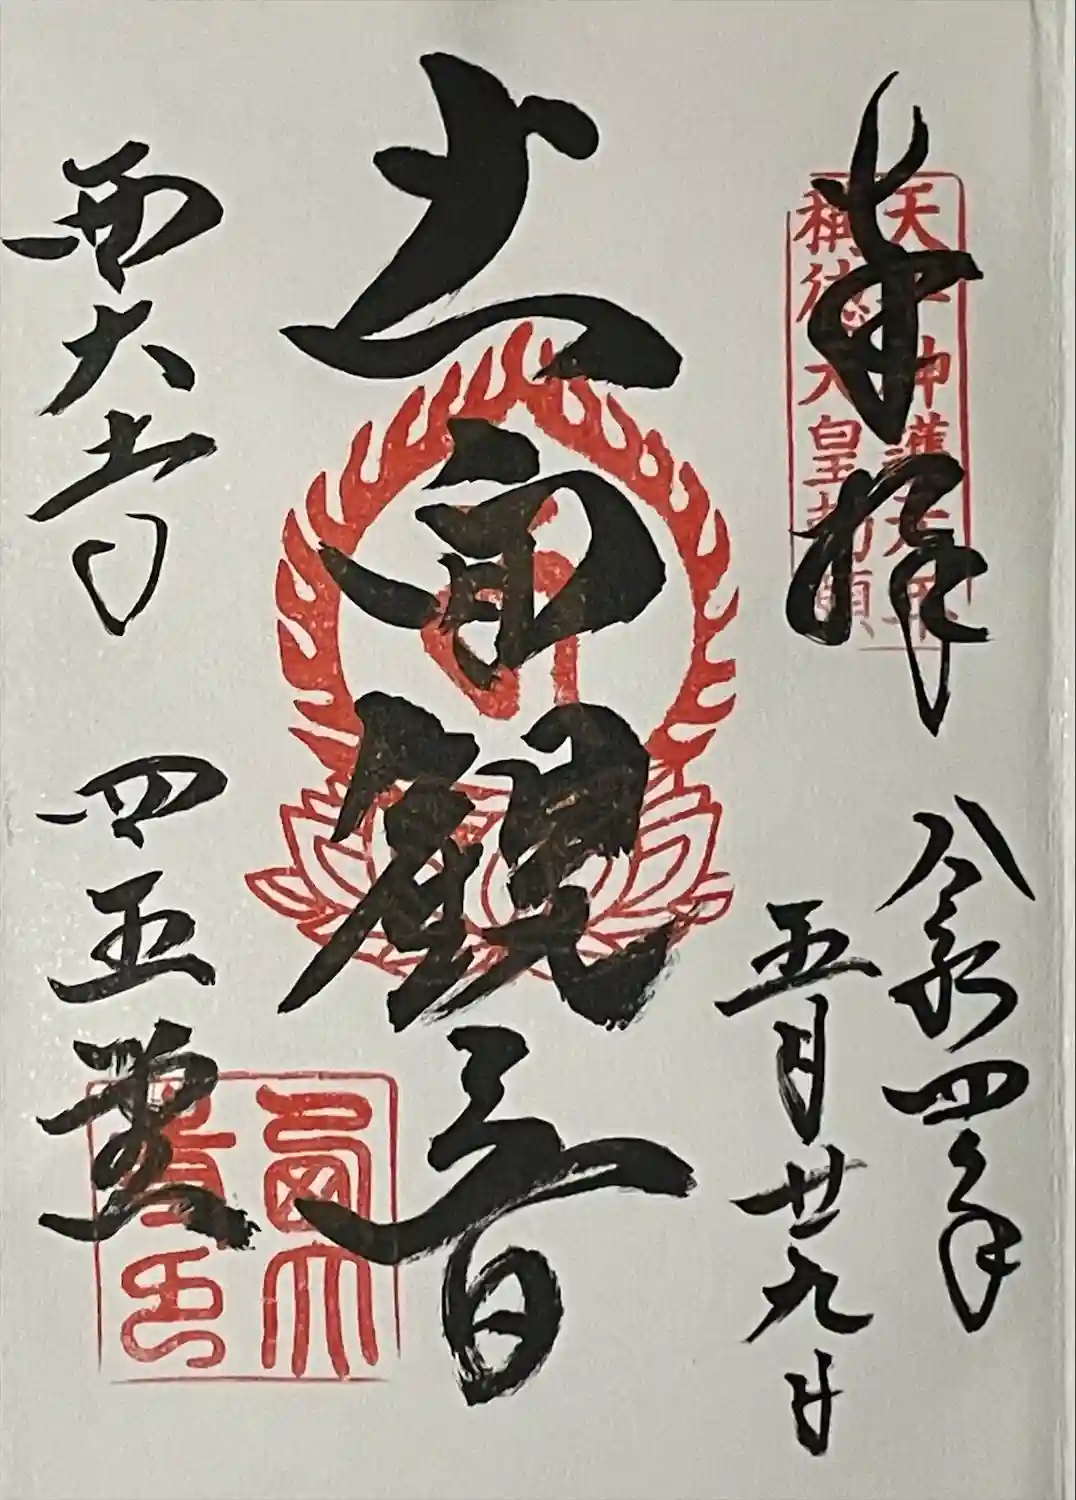 奉拝
天平神護元年
稱徳天皇勅願
令和四年
五月廿九日
十一面観音
西大寺 四王堂
西大
寺印